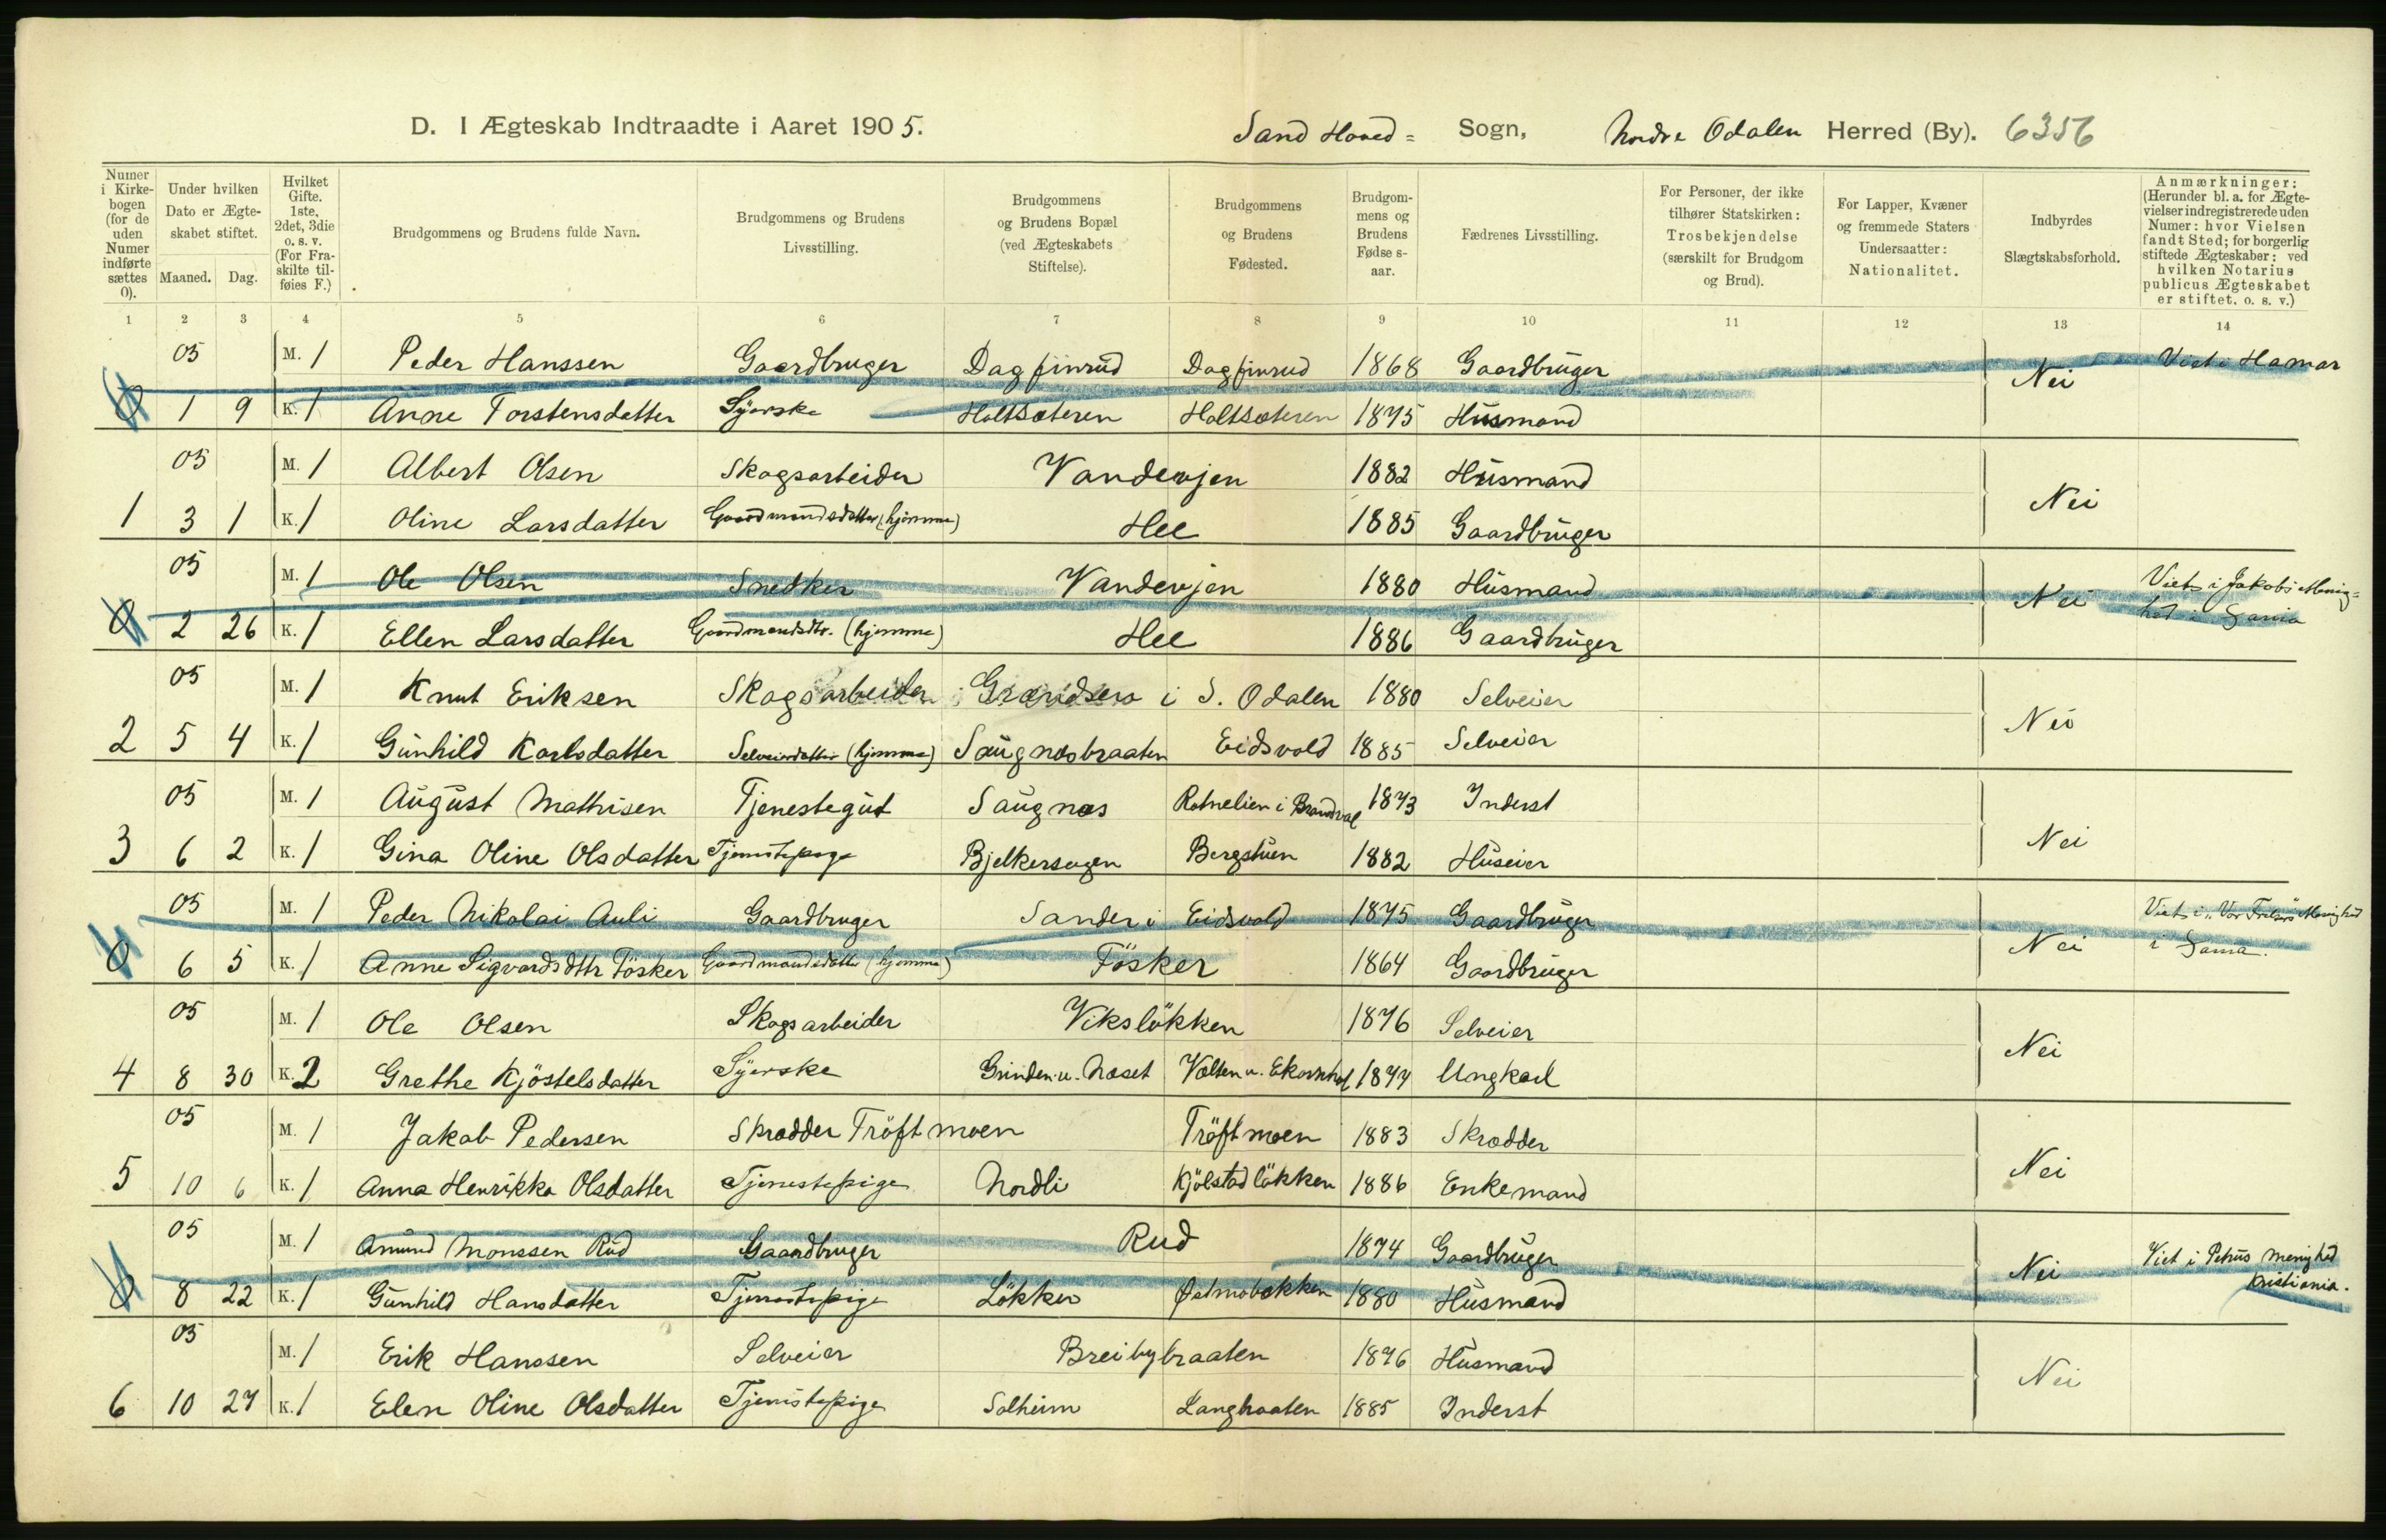 D. I Ægteskab Indtraadte i Aaret 1905. Sand Hoved= Sogn, Nordre Odalen Herred (By). 6356
Numer i Kirkebogen (for de uden Numer indførte sættes 0).
Under hvilken Dato er Ægteskabet stiftet. Maaned. Dag.
Hvilket Gifte. 1ste, 2det, 3die o. s. v. (For Fraskilte tilføies F.)
Brudgommens og Brudens fulde Navn.
Brudgommens og Brudens Livsstilling.
Brudgommens og Brudens Bopæl (ved Ægteskabets Stiftelse).
Brudgommens og Brudens Fødested.
Brudgommens og Brudens Fødselsaar.
Fædrenes Livsstilling.
For Personer, der ikke tilhører Statskirken: Trosbekjendelse (særskilt for Brudgom og Brud).
For Lapper, Kvæner og fremmede Staters Undersaatter: Nationalitet.
Indbyrdes Slægtskabsforhold.
Anmærkninger: (Herunder bl. a. for Ægtevielser indregistrerede uden Numer: hvor Vielsen fandt Sted; for borgerlig stiftede Ægteskaber: ved hvilken Notarius publicus Ægteskabet er stiftet. o. s. v.)
1 2 3 4 5 6 7 8 9 10 11 12 13 14
05 M. 1 Peder Hanssen Gaardbruger Dagfinrud Dagfinrud 1868 Gaardbruger Nei Viet i Hamar
0 1 9 K. 1 Anne Torstensdatter Syerske Holtsæteren Holtsæteren 1875 Husmand
05 M. 1 Albert Olsen Skogsarbeider Vandevjen 1882 Husmand Nei
1 3 1 K. 1 Oline Larsdatter Gaardmandsdatter (hjemme) Hee 1885 Gaardbruger
05 M. 1 Ole Olsen Snedker Vandevjen 1880 Husmand Nei Viet i Jakobs Menig=
0 2 26 K. 1 Ellen Larsdatter Gaardmandsdtr. (hjemme) Hee 1886 Gaardbruger hed i
05 M. 1 Knut Eriksen Skogsarbeider i S. Odalen 1880 Selveier Nei
2 5 4 K. 1 Gunhild Karlsdatter Selveierdatter (hjemme) Saugnæsbraaten Eidsvold 1885 Selveier
05 M. 1 August Mathisen Tjenestegut Saugnæs Rotnelien i Brandval 1873 Inderst Nei
3 6 2 K. 1 Gina Oline Olsdatter Tjenestepige Bjelkersagen Bergstuen 1882 Huseier
05 M. 1 Peder Nikolai Auli Gaardbruger Sander i Eidsvold 1875 Gaardbruger Nei Viet i "Vor Frelsers" Menighed
0 6 5 K. 1 Anne Sigvardsdtr Fösker Gaardmandsdatter (hjemme) Fösker 1864 Gaardbruger i
05 M. 1 Ole Olsen Skogsarbeider Vikslökken 1876 Selveier Nei
4 8 30 K. 2 Grethe Kjöstelsdatter Syerske Grinden u. Næset Volten u. Ekornhol 1877 Ungkarl
05 M. 1 Jakob Pedersen Skrædder Tröftmoen Tröftmoen 1883 Skrædder Nei
5 10 6 K. 1 Anna Henrikka Olsdatter Tjenestepige Nordli Kjölstadlökken 1886 Enkemand
05 M. 1 Amund Monssen Rud Gaardbruger Rud 1874 Gaardbruger Nei Viet i Petrus Menighed
0 8 22 K. 1 Gunhild Hansdatter Tjenestepige Løkken Østmobakken 1880 Husmand Kristiania.
05 M. 1 Erik Hanssen Selveier Breibybraaten 1876 Husmand Nei
6 10 27 K. 1 Elen Oline Olsdatter Tjenestepige Solheim Langbraaten 1885 Inderst